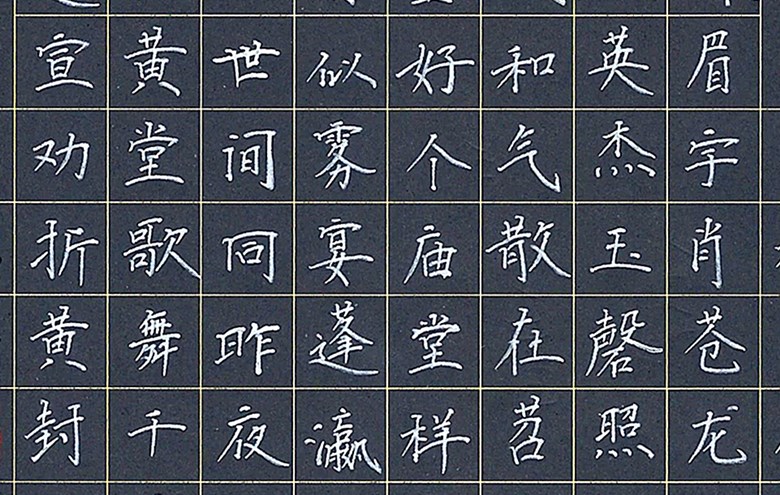 眉宇肖苍龙
英杰玉磬照
和气散在苕
好个庙堂样
似雾宴蓬瀛
世间同昨夜
黄堂歌舞千
宣劝折黄封